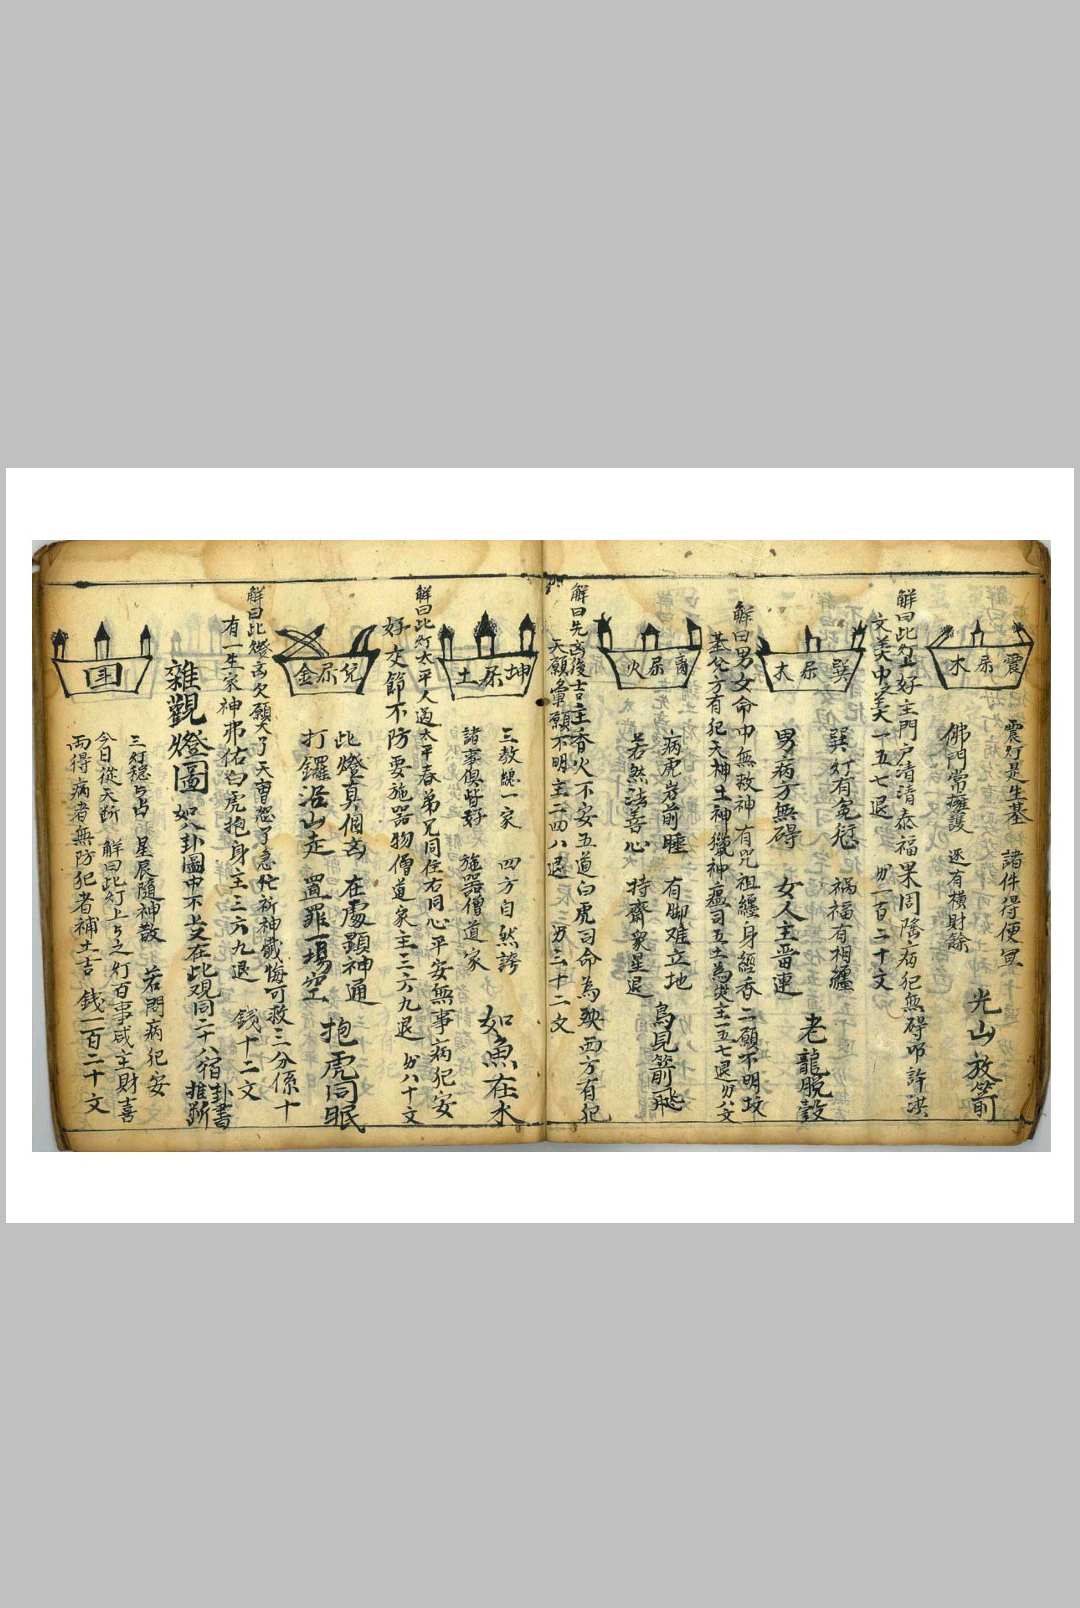 震屬木
震灯是生基 諸件得便冥
佛門常擁護 迷有橫財餘
光山放箭
解曰此灯上好主門户清清泰福果周隆病犯無碍叩許洪
文美中美大一五七退 另一百二十文
巽屬木
巽灯有冤愆 禍福有相纏
男病方無碍 女人主晋連
老龍脫殼
解曰男女命巾無救神有咒祖纏身經香二願不明坟
基坐方有犯天神土神獵神瘟司五土為災主一五七退另八文
离屬火
病虎岩前睡 有脚难立地
若然法善心 持齋衆星退
鳥見箭飛
解曰先凶後吉主香火不安五道白虎司命為殃西方有犯
天願彙願不明主二四八退 另三十二文
坤屬土
三教總一家 四方自然誇
諸事俱皆好 施器僧道家
如魚在水
解曰此灯太平人過太平春弟兄同住右同心平安無事病犯安
好交節不防要施器物僧道家主三六九退 另八十文
兌屬金
此燈真個玄 在處顯神通
打鑼沿山走 置罪一場空
抱虎同眠
解曰此燈玄欠願大了天曹怨了急忙祈神懺悔可救三分係十
有一生家神弗佑白虎抱身主三六九退 錢十二文
雜觀燈圖
如八卦圖中不上文在此观同二十八宿卦書推斷
三灯穩占 星辰隨神散 若問病犯安
今日從天断 解曰此灯上之灯百事咸主財喜
両得病者無防犯者補土吉 錢一百二十文